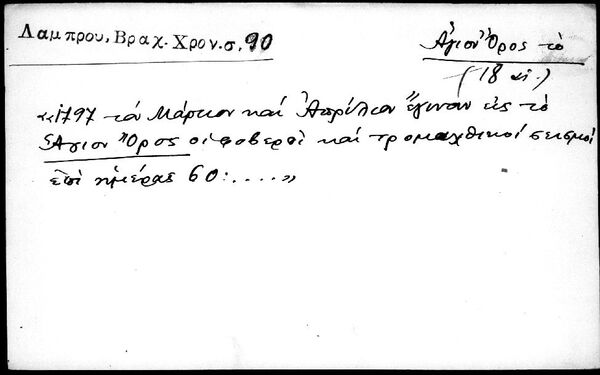 Λαμπρου, Βραχ. Χρον. σ. 90
Ἅγιον Ὄρος τὸ
(18 αἰ.)
«1797 τὸν Μάρτιον καὶ Ἀπρίλιον ἔγιναν εἰς τὸ
Ἅγιον Ὄρος οἱ φοβεροὶ καὶ τρομαχθικοὶ σεισμοὶ
ἐπὶ ἡμέρας 60:....»